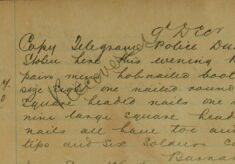 9th Decr
Copy Telegram Police Du
Stolen here this evening
pairs men's hobnailed boot
size eight one nailed round
square headed nails one
nine large square head
nails all have toe and
tips and Six Soldiers co
Barna
Recovered